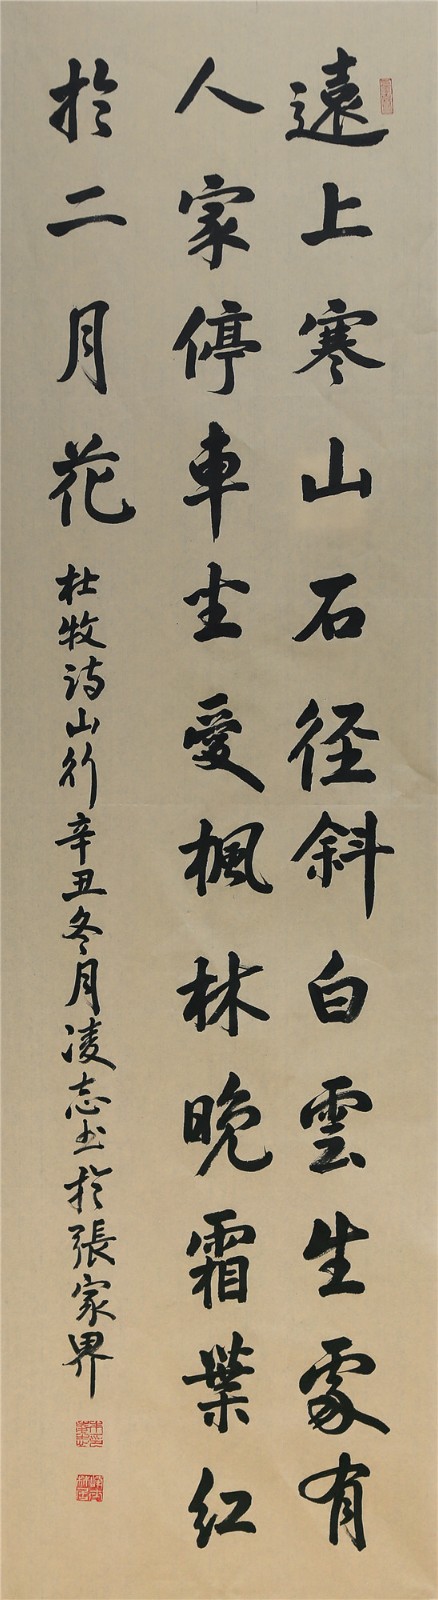 遠上寒山石徑斜白雲生處有
人家停車坐愛楓林晚霜葉紅
於二月花
杜牧诗山行辛丑冬月凌志书於張家界